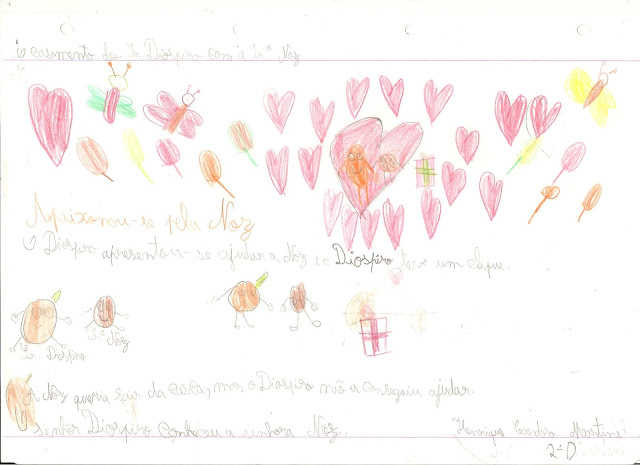 O casamento do Sr. Diospiro com a Sr.ª Noz
Apaixonou-se pela Noz
O Diospiro apresentou-se ajudar a Noz e o Diospiro teve um clique.
Sr. Diospiro
Sr.ª Noz
A Noz queria sair da casca, mas o Diospiro não a conseguiu ajudar.
O senhor Diospiro conheceu a senhora Noz.
Henrique Martins
2º D